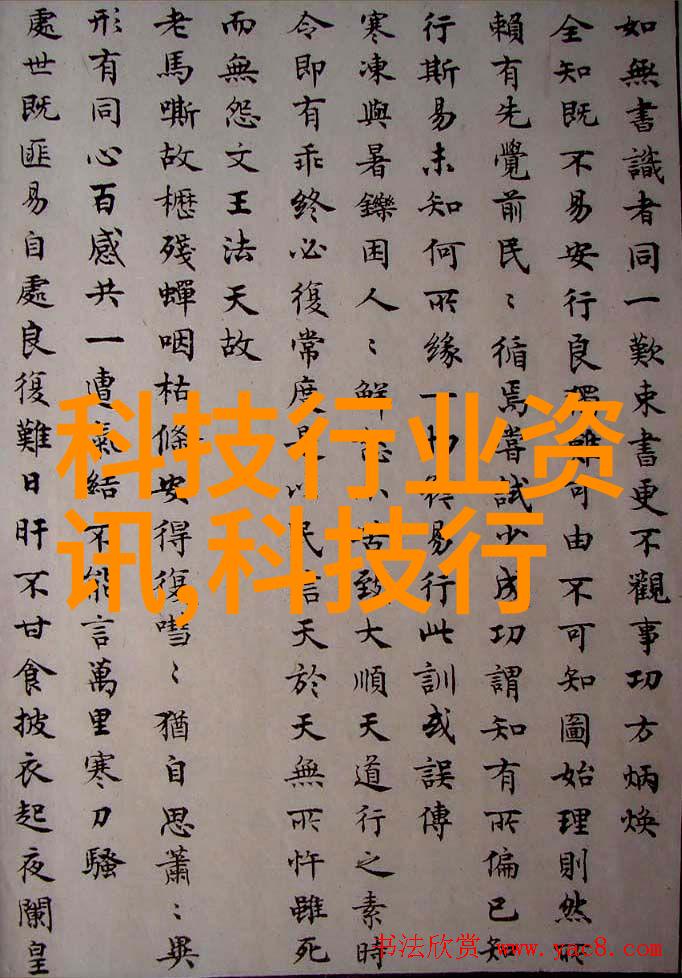 如無書識者同一歎束書更不觀事功方炳煥
全知既不易安行良難可由不可知圖始理則然所
賴有先覺前民〻循焉嘗試少成功謂知有所偏已知
行斯易未知何所緣一切易行此訓或誤傳
寒凍與暑鑠困人〻鮮致大順天道行之素時
令即有乖終必復常度是以民信天於天無所忤雖死
而無怨文王法天故
老馬嘶故櫪殘蟬咽枯條安得復嘒〻猶自思蕭〻異
形有同心百感共一遭氣結不能言萬里寒刀騷
處世既匪易自處良復難日旰不甘食披衣起夜闌皇
科技行业资
讯,科技行
书法欣赏 www.yac8.com